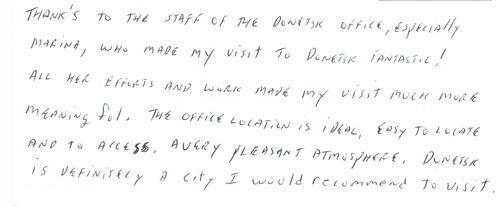 THANK'S TO THE STAFF OF THE DONETSK OFFICE, ESPECIALLY
MARINA, WHO MADE MY VISIT TO DONETSK FANTASTIC!
ALL HER EFFORTS AND WORK MADE MY VISIT MUCH MORE
MEANINGful. THE OFFICE LOCATION IS IDEAL, EASY TO LOCATE
AND TO ACCESS. A VERY PLEASANT ATMOSPHERE. DONETSK
IS DEFINITELY A CITY I WOULD RECOMMEND TO VISIT.